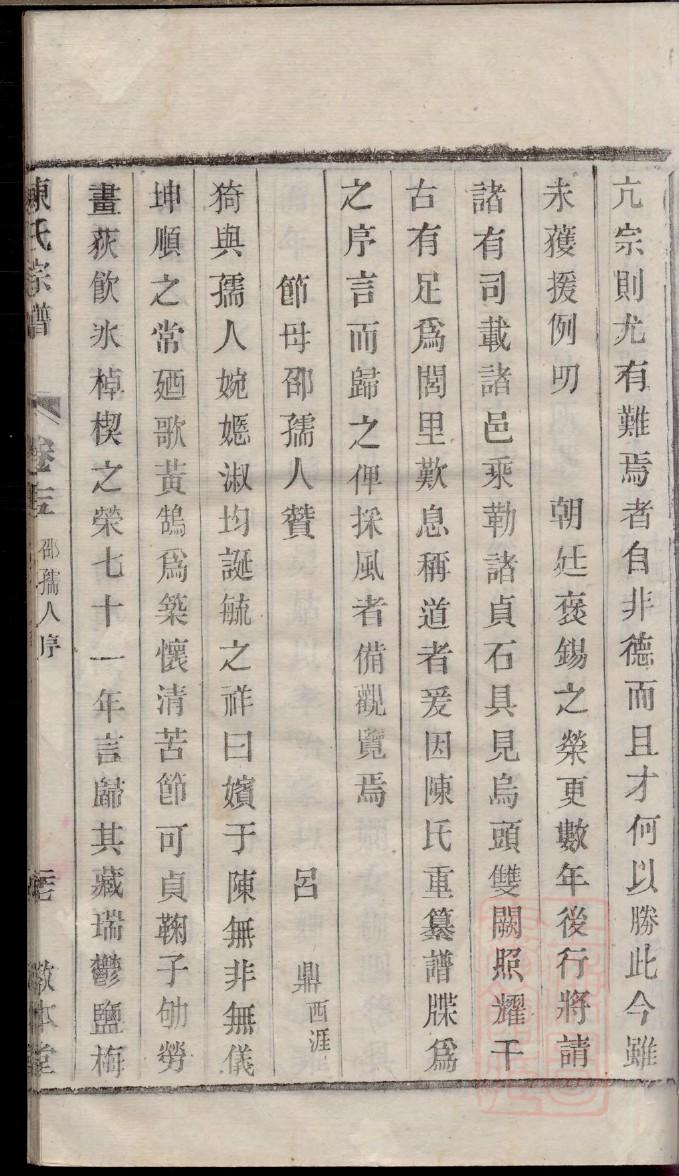 亢宗則尤有難焉者自非德而且才何以勝此今雖
未獲援例叨　朝廷褒錫之榮更數年後行將請
諸有司載諸邑乘勒諸貞石具見烏頭雙闕照耀千
古有足爲閭里歎息稱道者爰因陳氏重纂譜牒爲
之序言而歸之俾採風者備觀覽焉
節母邵孺人贊　呂　鼎西涯
猗與孺人婉嫕淑均誕毓之祥曰嬪于陳無非無儀
坤順之常廼歌黃鵠爲築懷清苦節可貞鞠子劬勞
畫荻飮冰棹楔之榮七十一年言歸其藏瑞鬱鹽梅
陳氏宗譜　卷　邵孺人序　敬本堂